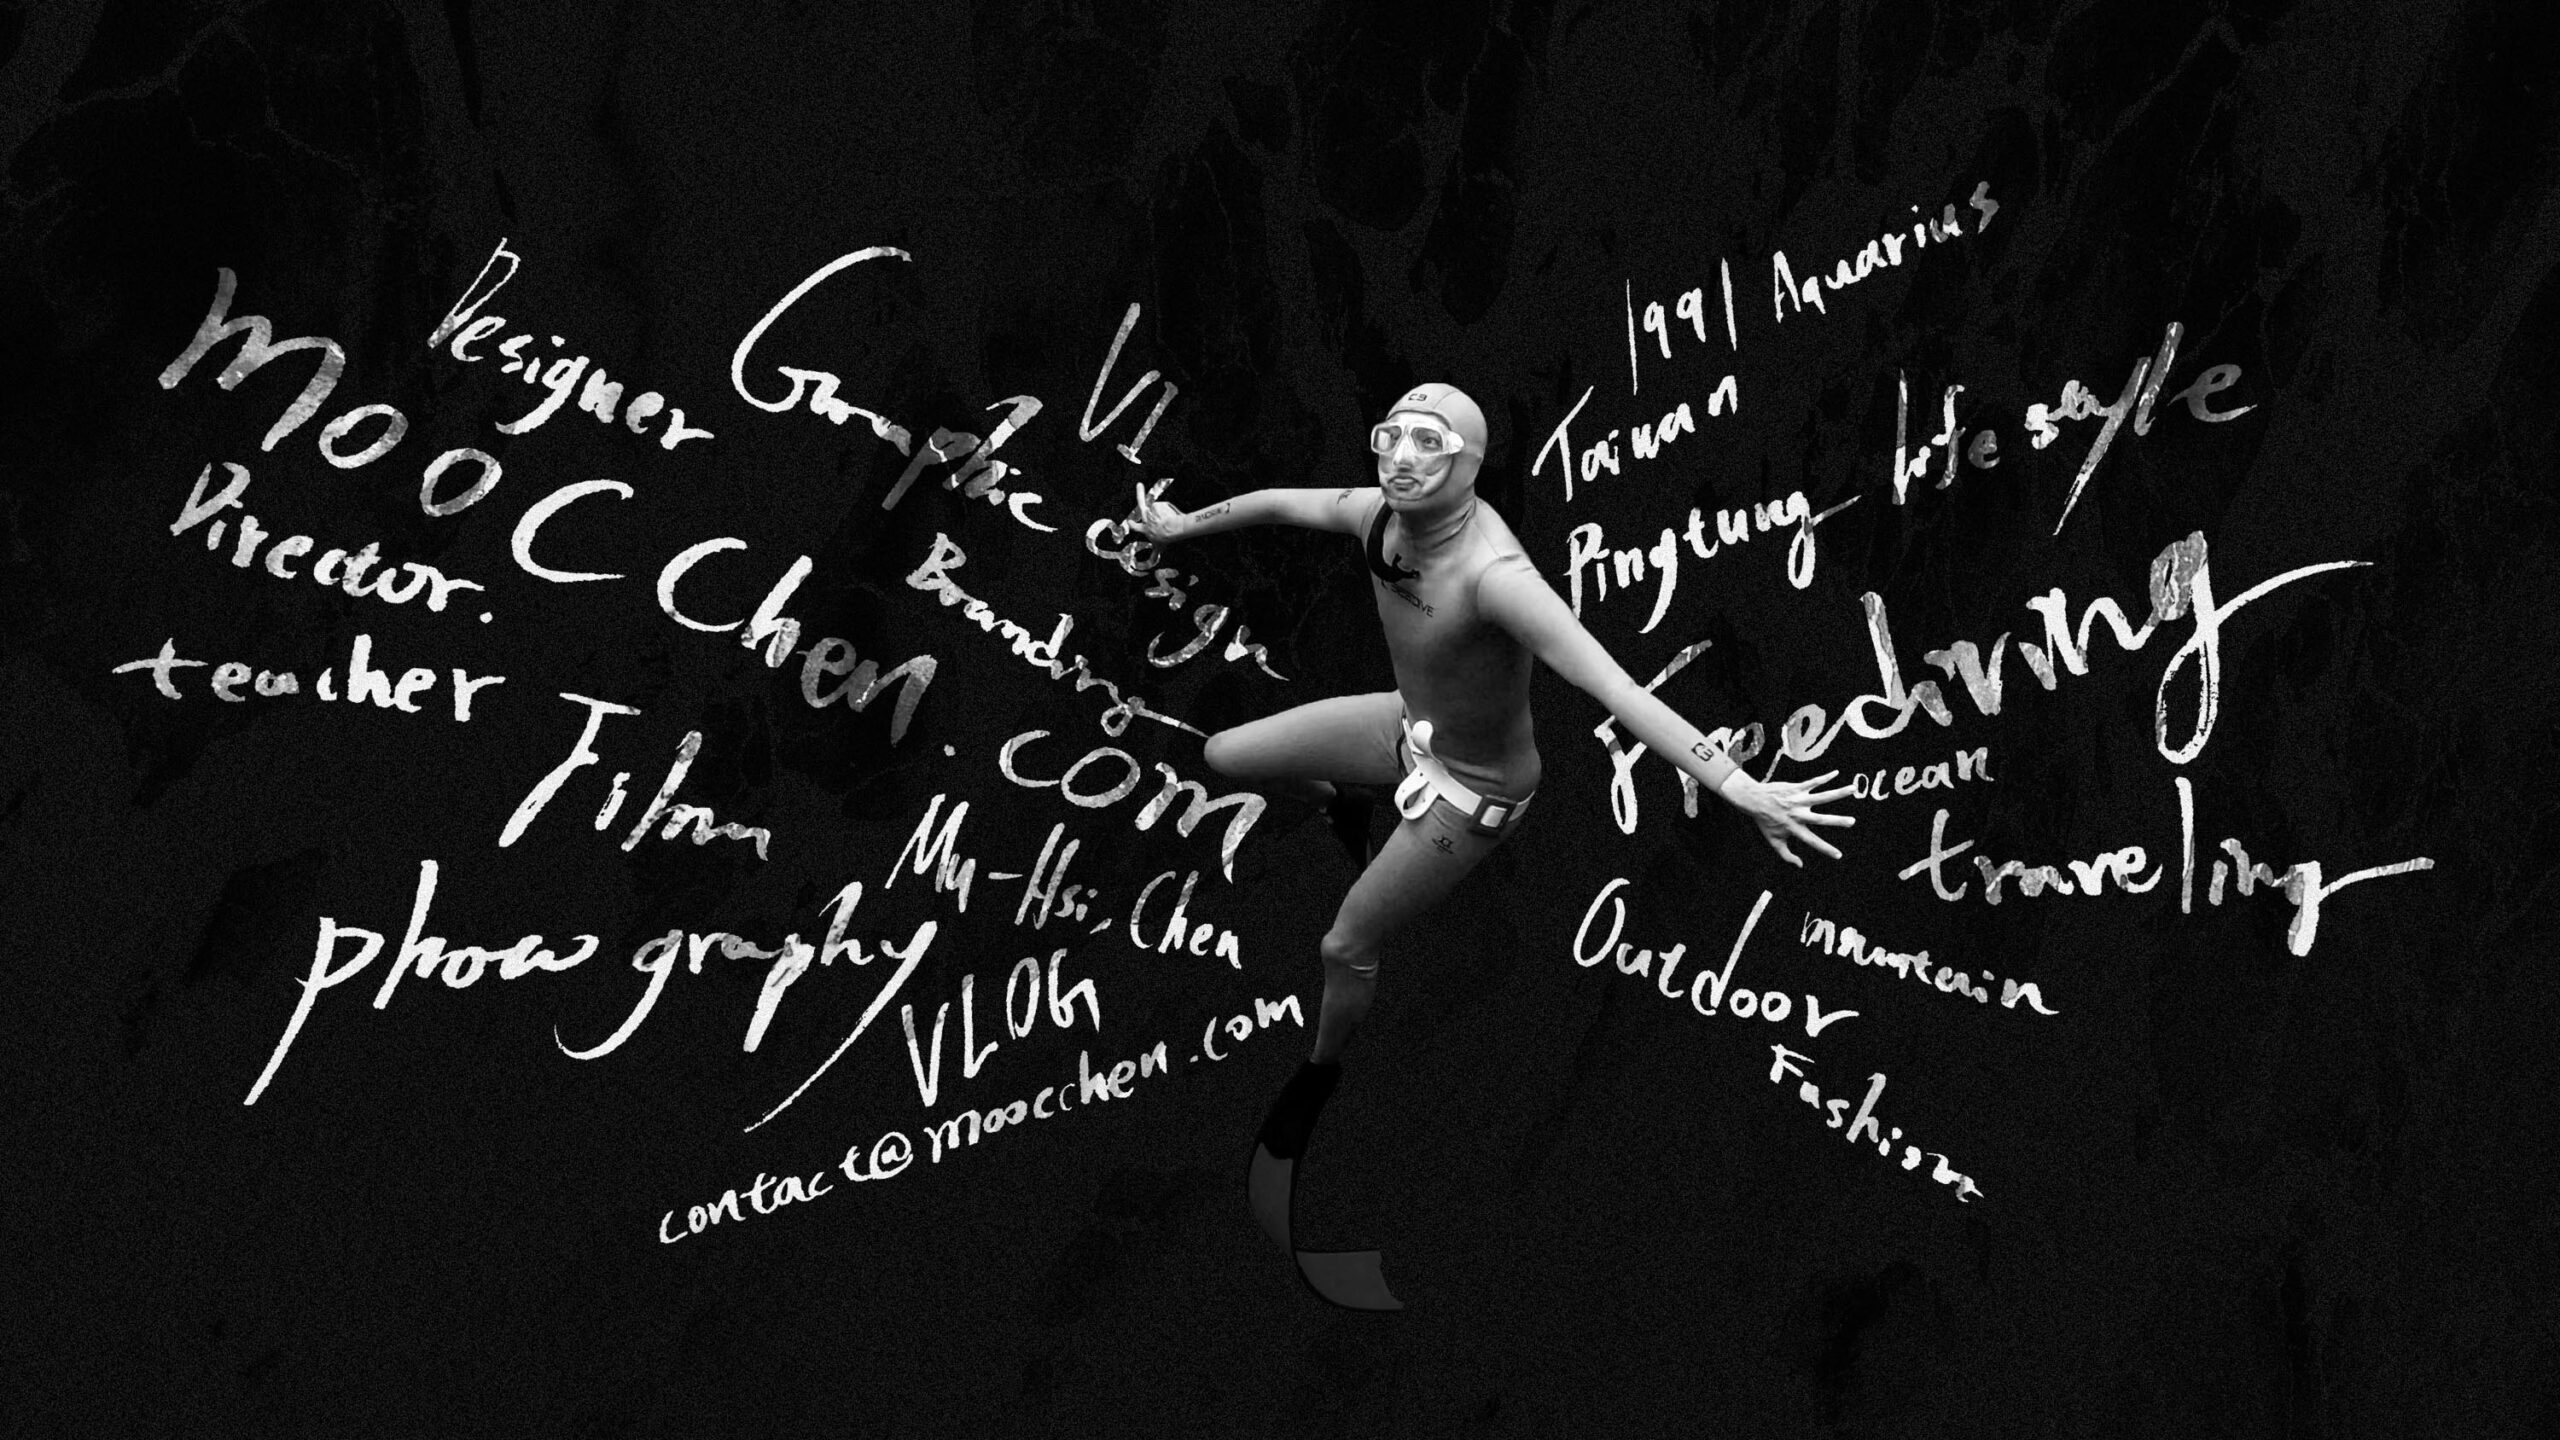 Designer
Graphic design
VI
moocchen.com
Director.
Branding
teacher
Film
Mu-Hsi, Chen
photography
VLOG
contact@moocchen.com
1991 Aquarius
Taiwan
Life style
Pingtung
Freediving
ocean
traveling
Outdoor
mountain
Fashion
C3
C3